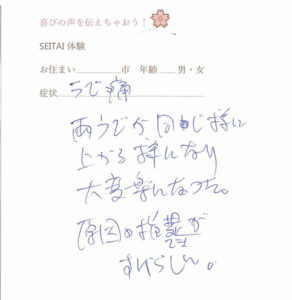 喜びの声を伝えちゃおう！
SEITAI 体験
お住まい 市 年齢 男・女
症状 うで痛
両うでが同じ様に
上がる様になり
大変楽になった。
原因の推理が
すばらしい。